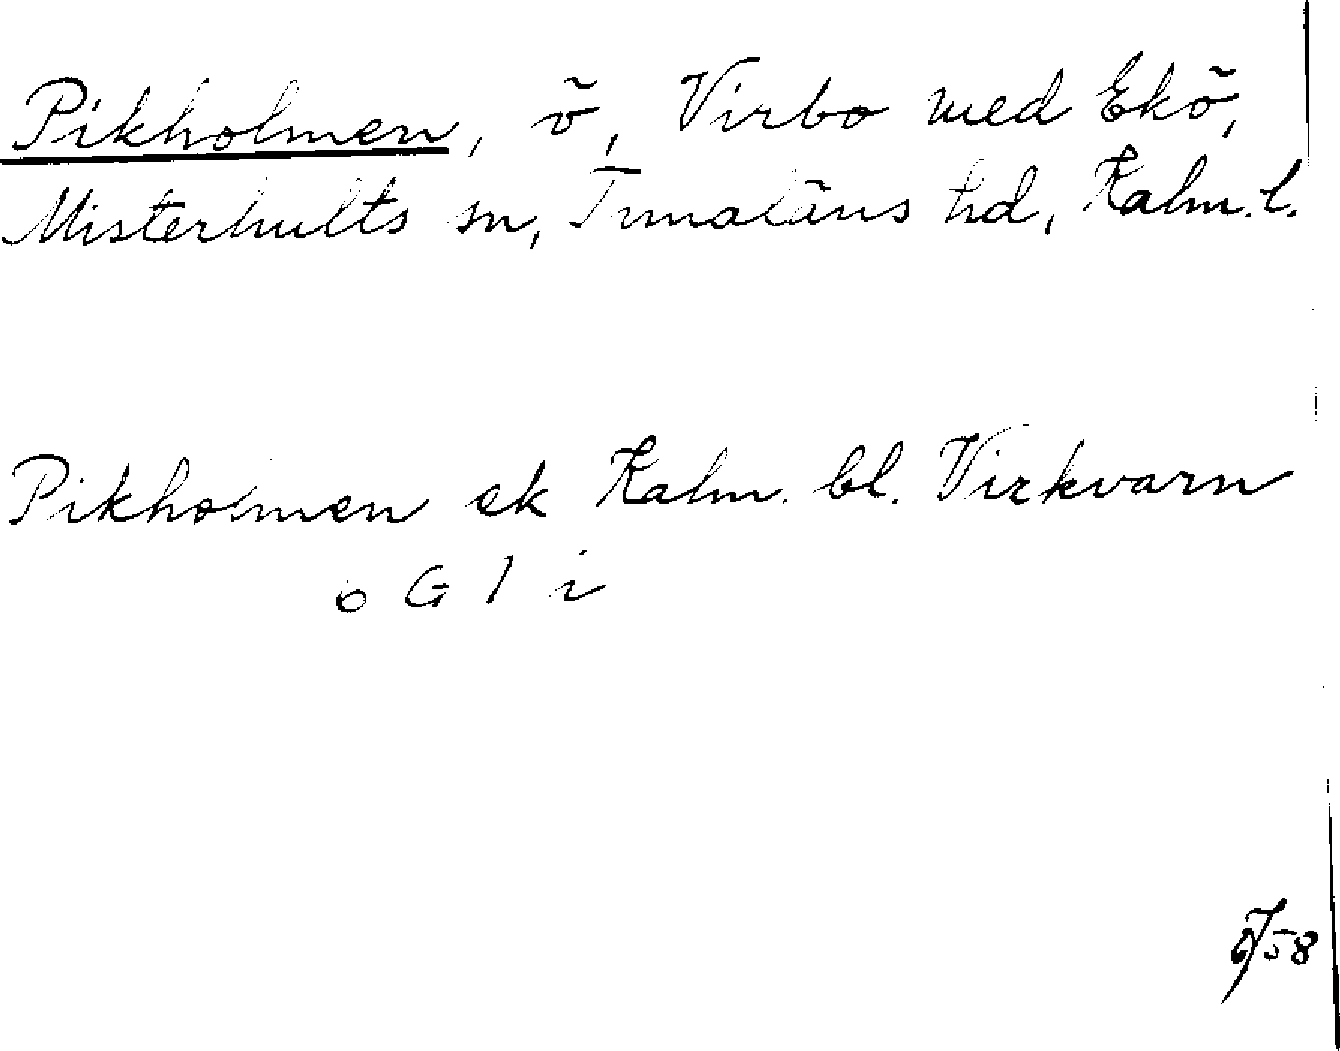 Pikholmen, ö, Virbo med Ekö,
Misterhults sn, Tunaläns hd, Kalm. l.
Pikholmen ek Kalm. bl. Virkvarn
6 G 1 i
58